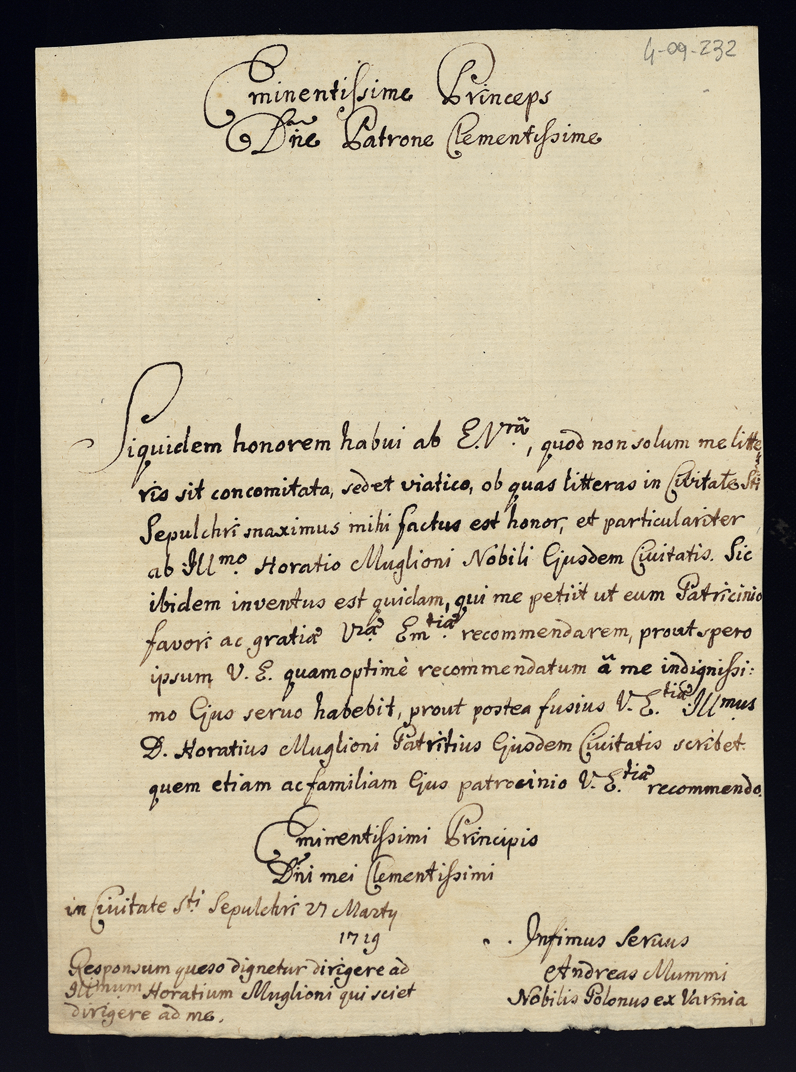 4-09-232
Eminentissime Princeps
Dne Patrone Clementissime
Siquidem honorem habui ab E.Vrã, quod non solum me litte
ris sit concomitata, sed et viatico, ob quas litteras in Civitate Sti
Sepulchri maximus mihi factus est honor, et particulariter
ab Illmo. Horatio Muglioni Nobili Ejusdem Civitatis. Sic
ibidem inventus est quidam, qui me petiit ut eum Patricinio
favori ac gratiæ Vræ Emtiæ. recommendarem, prout spero
ipsum V. E. quamoptimè recommendatum ã me indignissi:
mo Ejus servo habebit, prout postea fusius V. E.tiæ Illmus
D. Horatius Muglioni Patritius Ejusdem Civitatis scribet.
quem etiam ac familiam Ejus patrocinio V. E.tiæ recommendo.
Eminentissimi Principis
Dñi mei Clementissimi
in Civitate Sti Sepulchri 27 Martij
1719
Responsum queso dignetur dirigere ad
Illmum Horatium Muglioni qui sciet
dirigere ad me.
Infimus Servus
Andreas Mummi
Nobilis Polonus ex Varmia